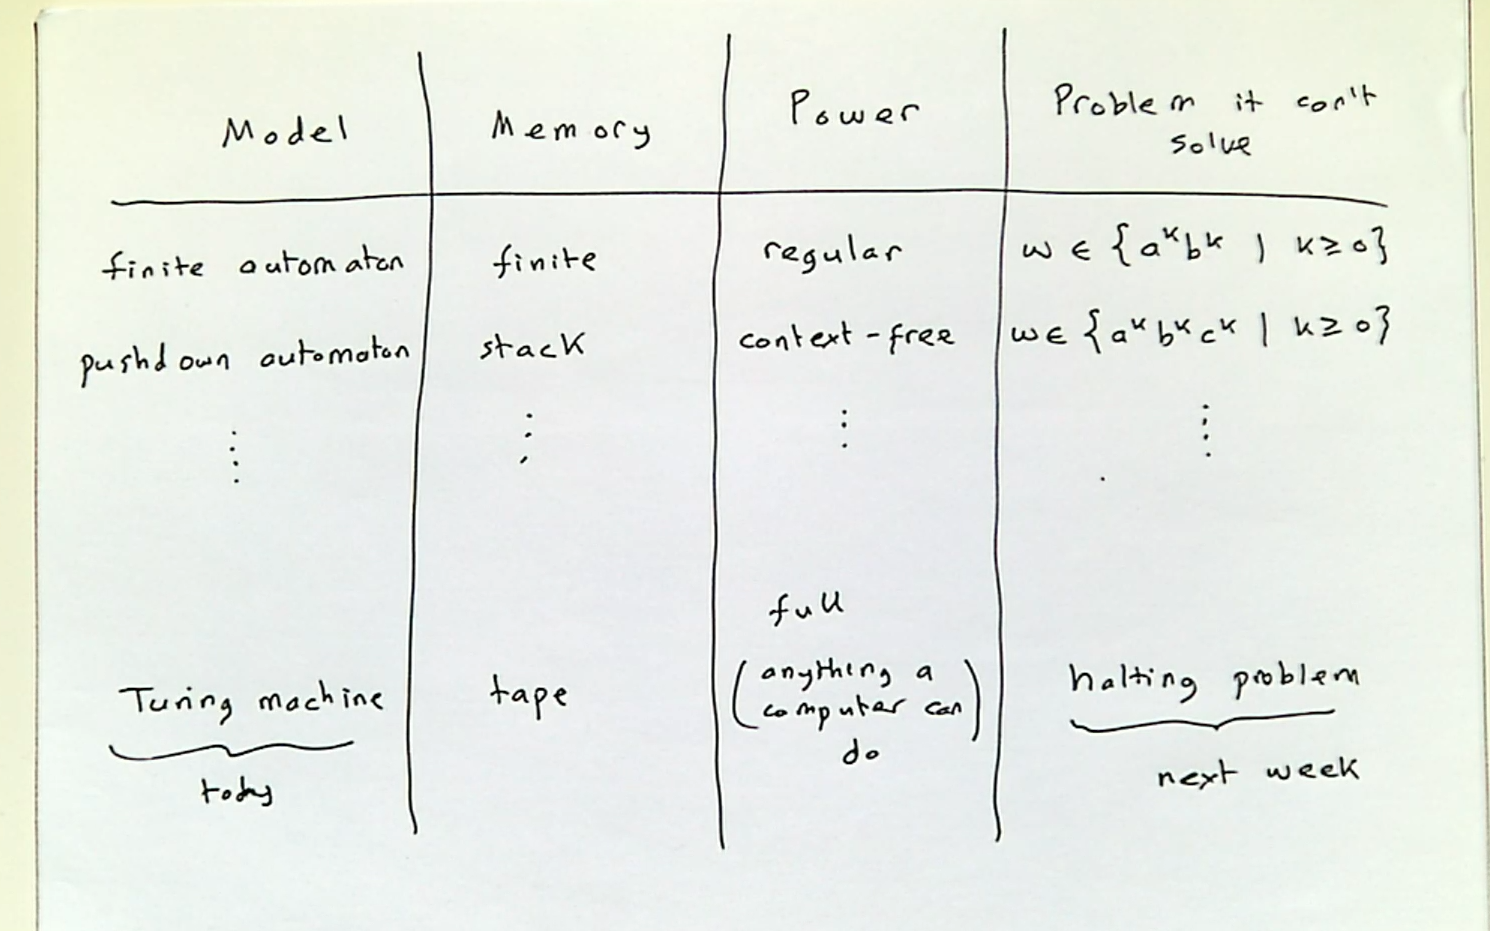 Model Memory Power Problem it can't
solve
finite automaton finite regular w ∈ {aᵏbᵏ | k ≥ 0}
pushdown automaton stack context-free w ∈ {aᵏbᵏcᵏ | k ≥ 0}
⋮ ⋮ ⋮ ⋮
full
Turing machine tape (anything a computer can do) halting problem
today next week